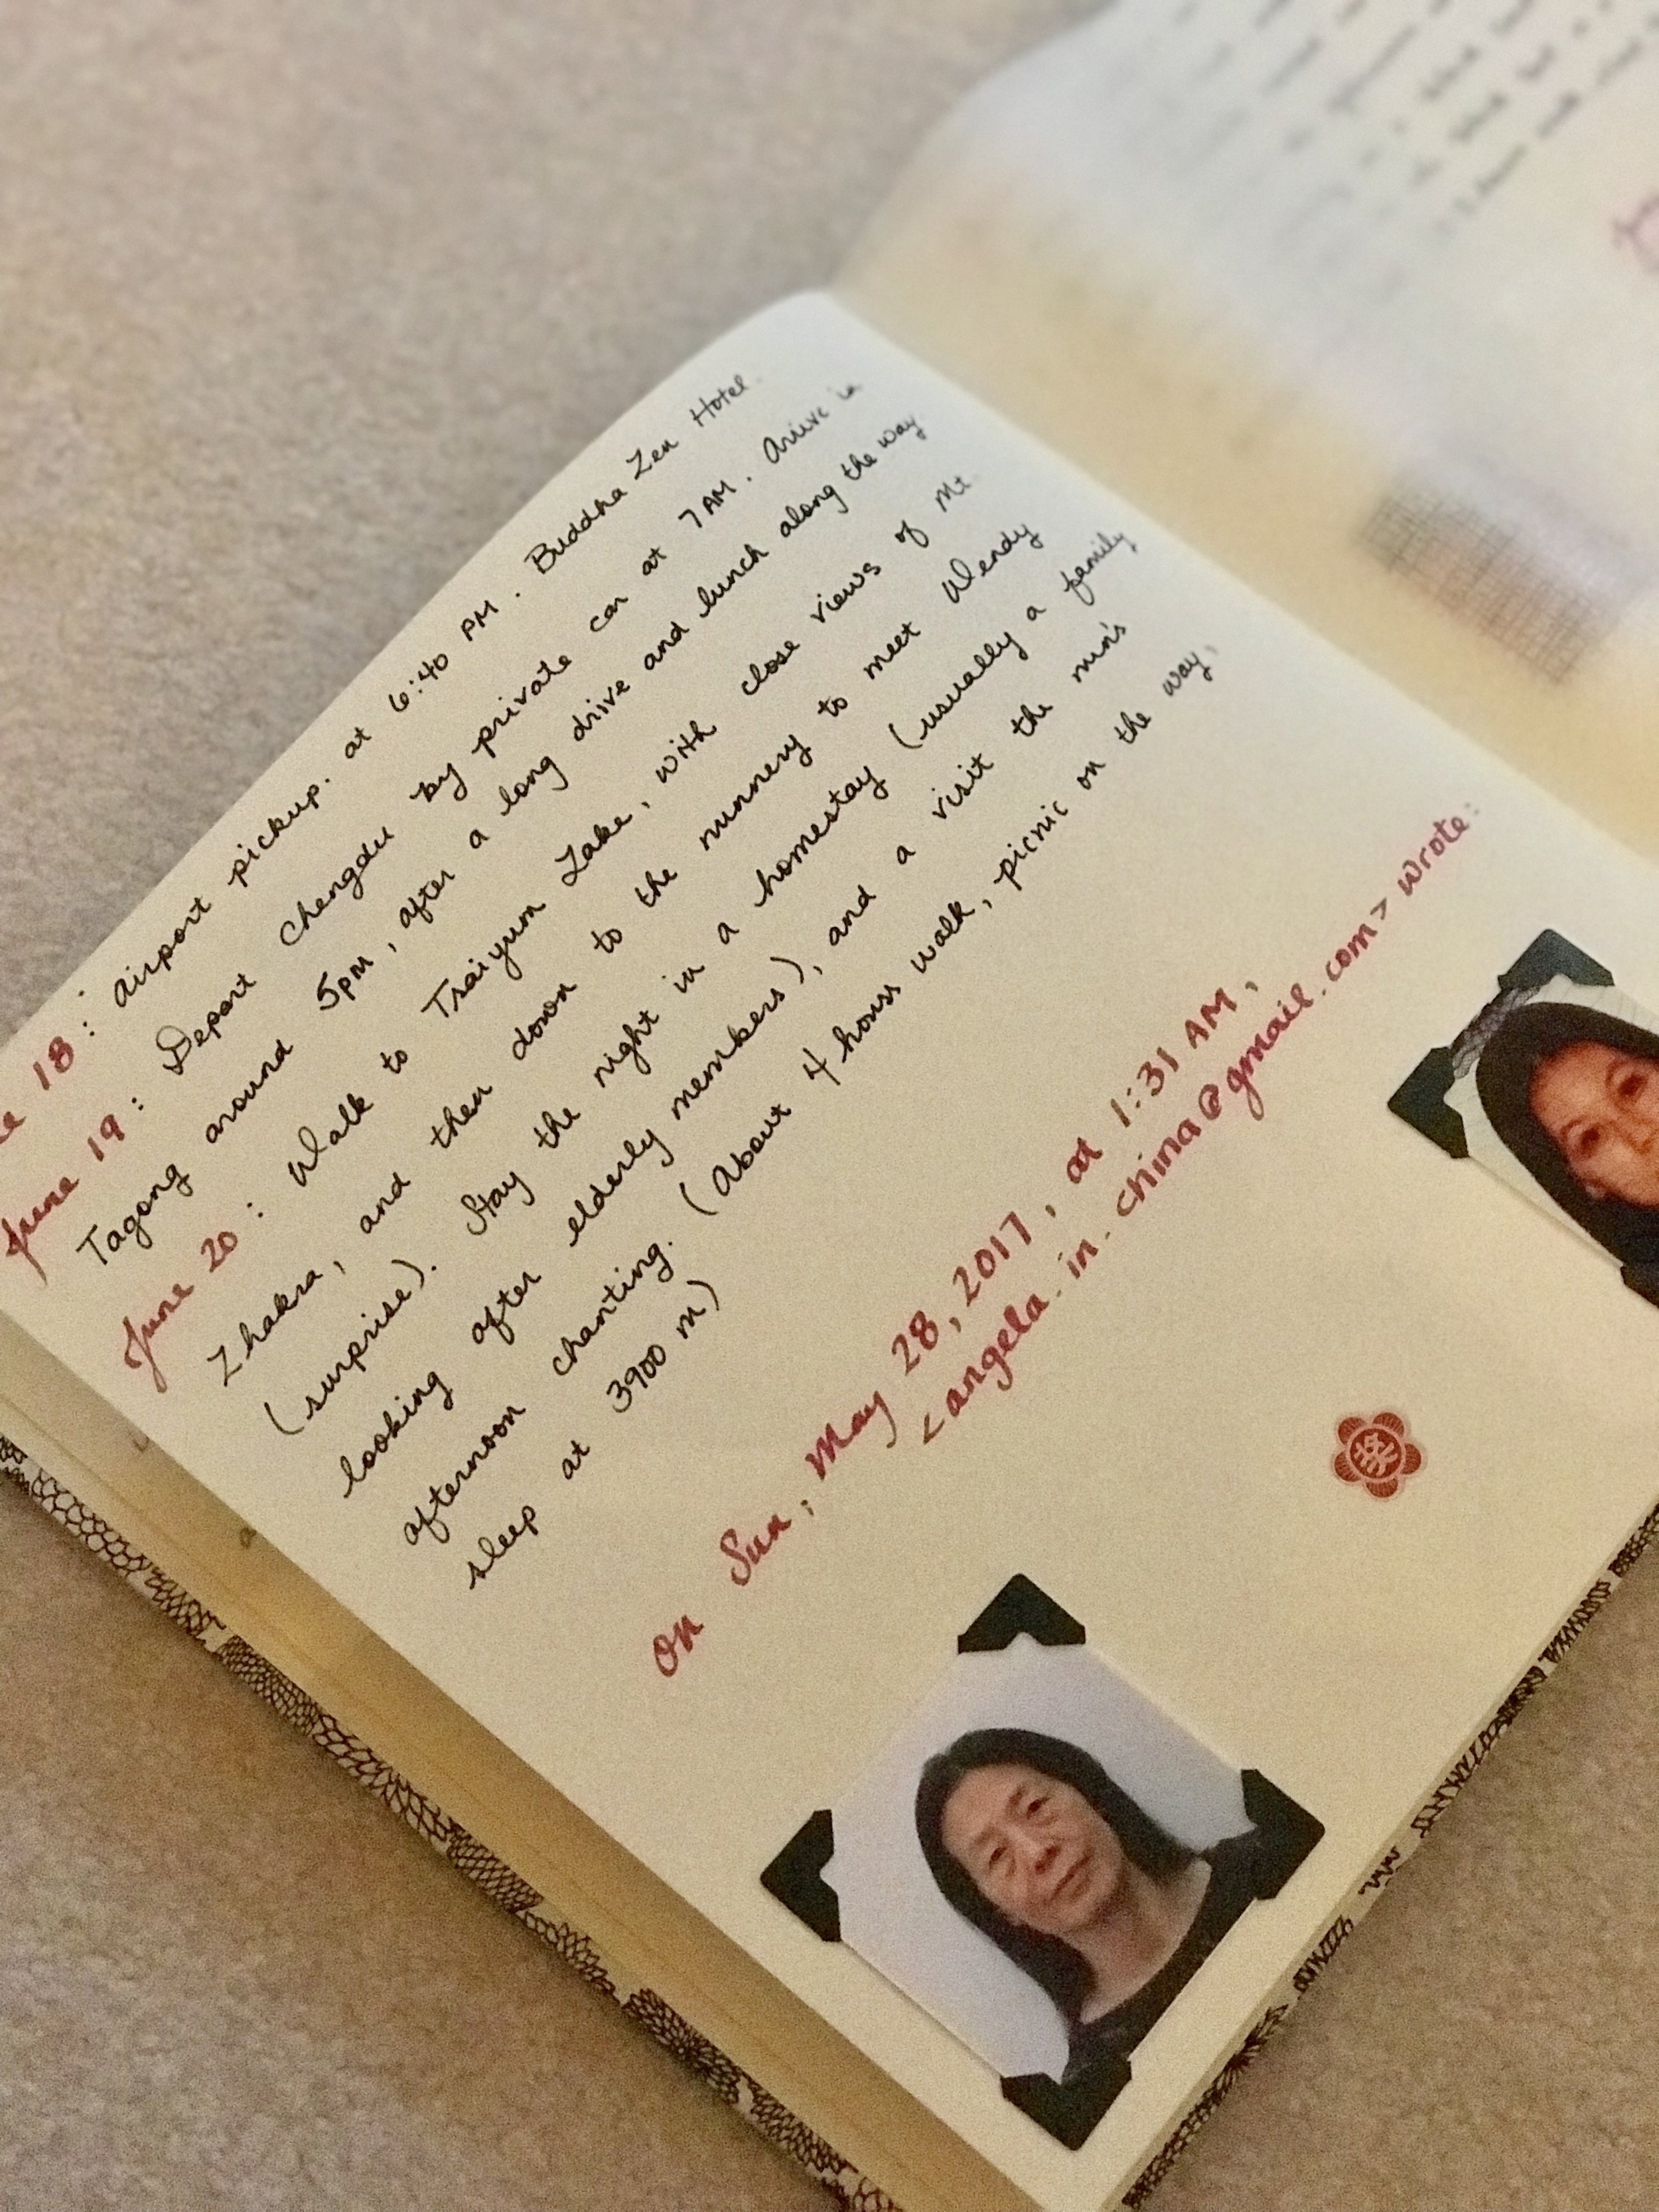 18: Airport pickup. at 6:40 PM. Buddha Zen Hotel.
June 19: Depart Chengdu by private car at 7AM. Arrive in
Tagong around 5PM, after a long drive and lunch along the way
June 20: Walk to Tsaiyum Lake, with close views of Mt
Zhakra, and then down to the nunnery to meet Wendy
(surprise). Stay the night in a homestay (usually a family
looking after elderly members), and a visit the nun's
afternoon chanting. (About 4 hours walk, picnic on the way,
sleep at 3900 m)
On Sun, May 28, 2017, at 1:31 AM,
<angela.in.china@gmail.com> wrote:
奖